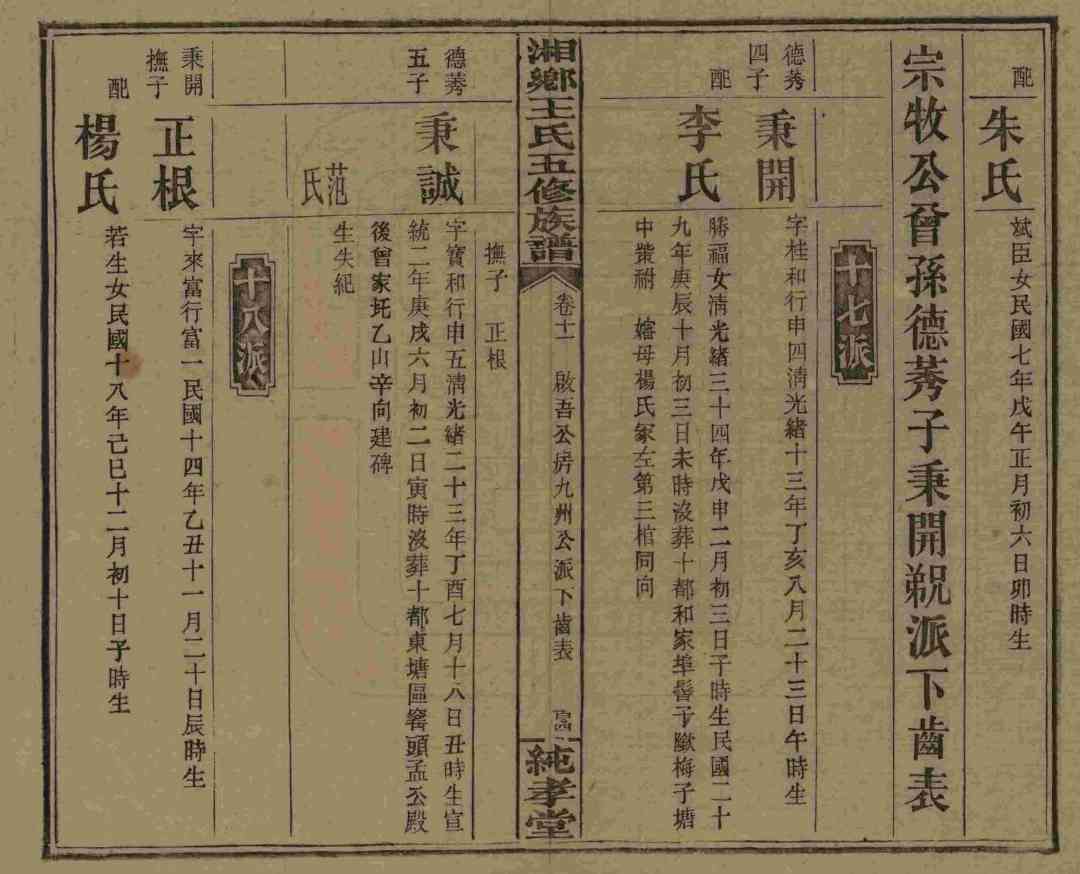 配
朱氏
斌臣女民國七年戊午正月初六日卯時生
宗牧公曾孫德莠子秉開覢派下齒表
十七派
德莠四子
秉開
字桂和行申四清光緒十三年丁亥八月二十三日午時生
配
李氏
勝福女清光緒三十四年戊申二月初三日子時生民國二十
九年庚辰十月初三日未時沒葬十都和家埠髻子㘭梅子塘
中塋祔嫆母楊氏冢左第三棺同向
湘鄉王氏五修族譜
卷十一
啟吾公房九州公派下齒表
純孝堂
撫子 正根
德莠五子
秉誠
字寶和行申五清光緒二十三年丁酉七月十八日丑時生宣
統二年庚戌六月初二日寅時沒葬十都東塘區窰頭孟公殿
後曾家圫乙山辛向建碑
范氏
生失紀
十八派
秉開撫子
正根
字來富行富一民國十四年乙丑十一月二十日辰時生
配
楊氏
若生女民國十八年己巳十二月初十日子時生